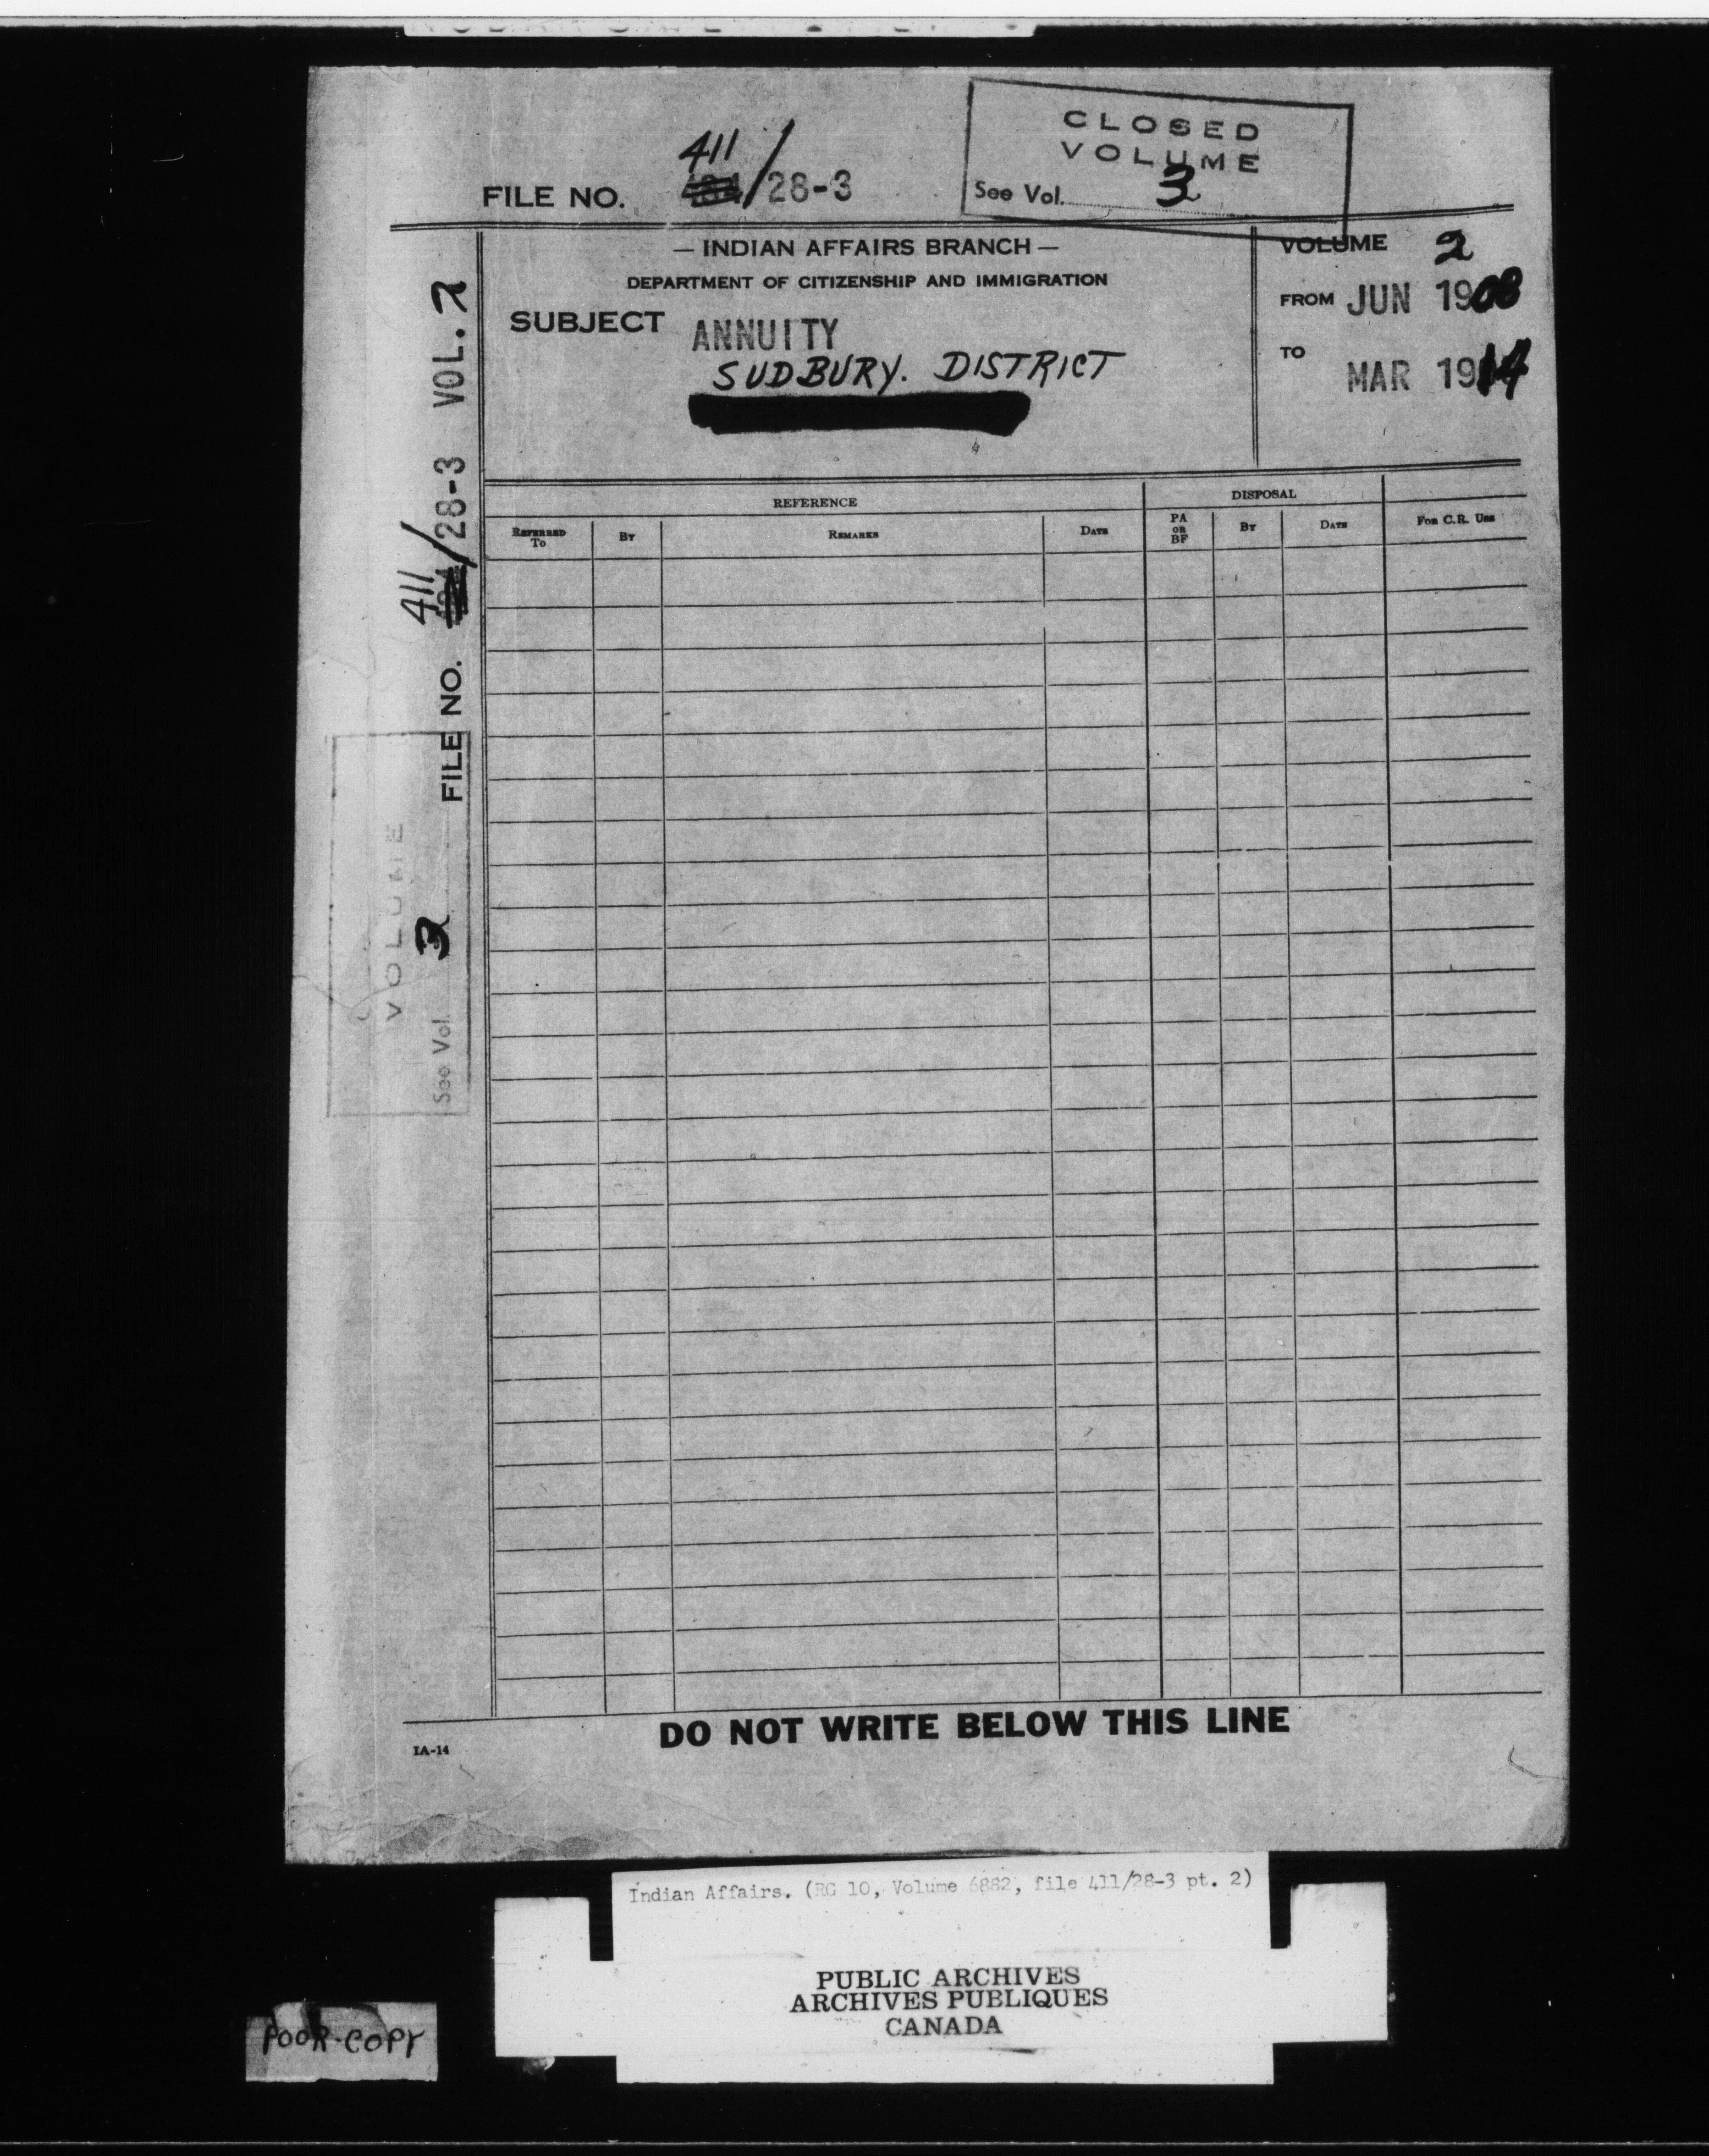 CLOSED
VOLUME
See Vol. 3
411/
FILE NO. /28-3
— INDIAN AFFAIRS BRANCH —
DEPARTMENT OF CITIZENSHIP AND IMMIGRATION
SUBJECT ANNUITY
SUDBURY. DISTRICT
VOLUME 2
FROM JUN 1908
TO MAR 1914
REFERENCE
DISPOSAL
REFERRED TO
BY
REMARKS
DATE
PA OR BF
BY
DATE
FOR C.R. USE
FILE NO. 411/28-3 VOL. 2
VOLUME
See Vol. 3
DO NOT WRITE BELOW THIS LINE
IA-14
Indian Affairs. (RG 10, Volume 6882, file 411/28-3 pt. 2)
PUBLIC ARCHIVES
ARCHIVES PUBLIQUES
CANADA
POOR COPY